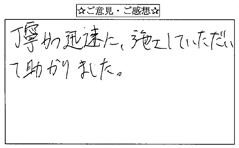 ☆ご意見・ご感想☆
丁寧かつ迅速に、施工していただい
て助かりました。